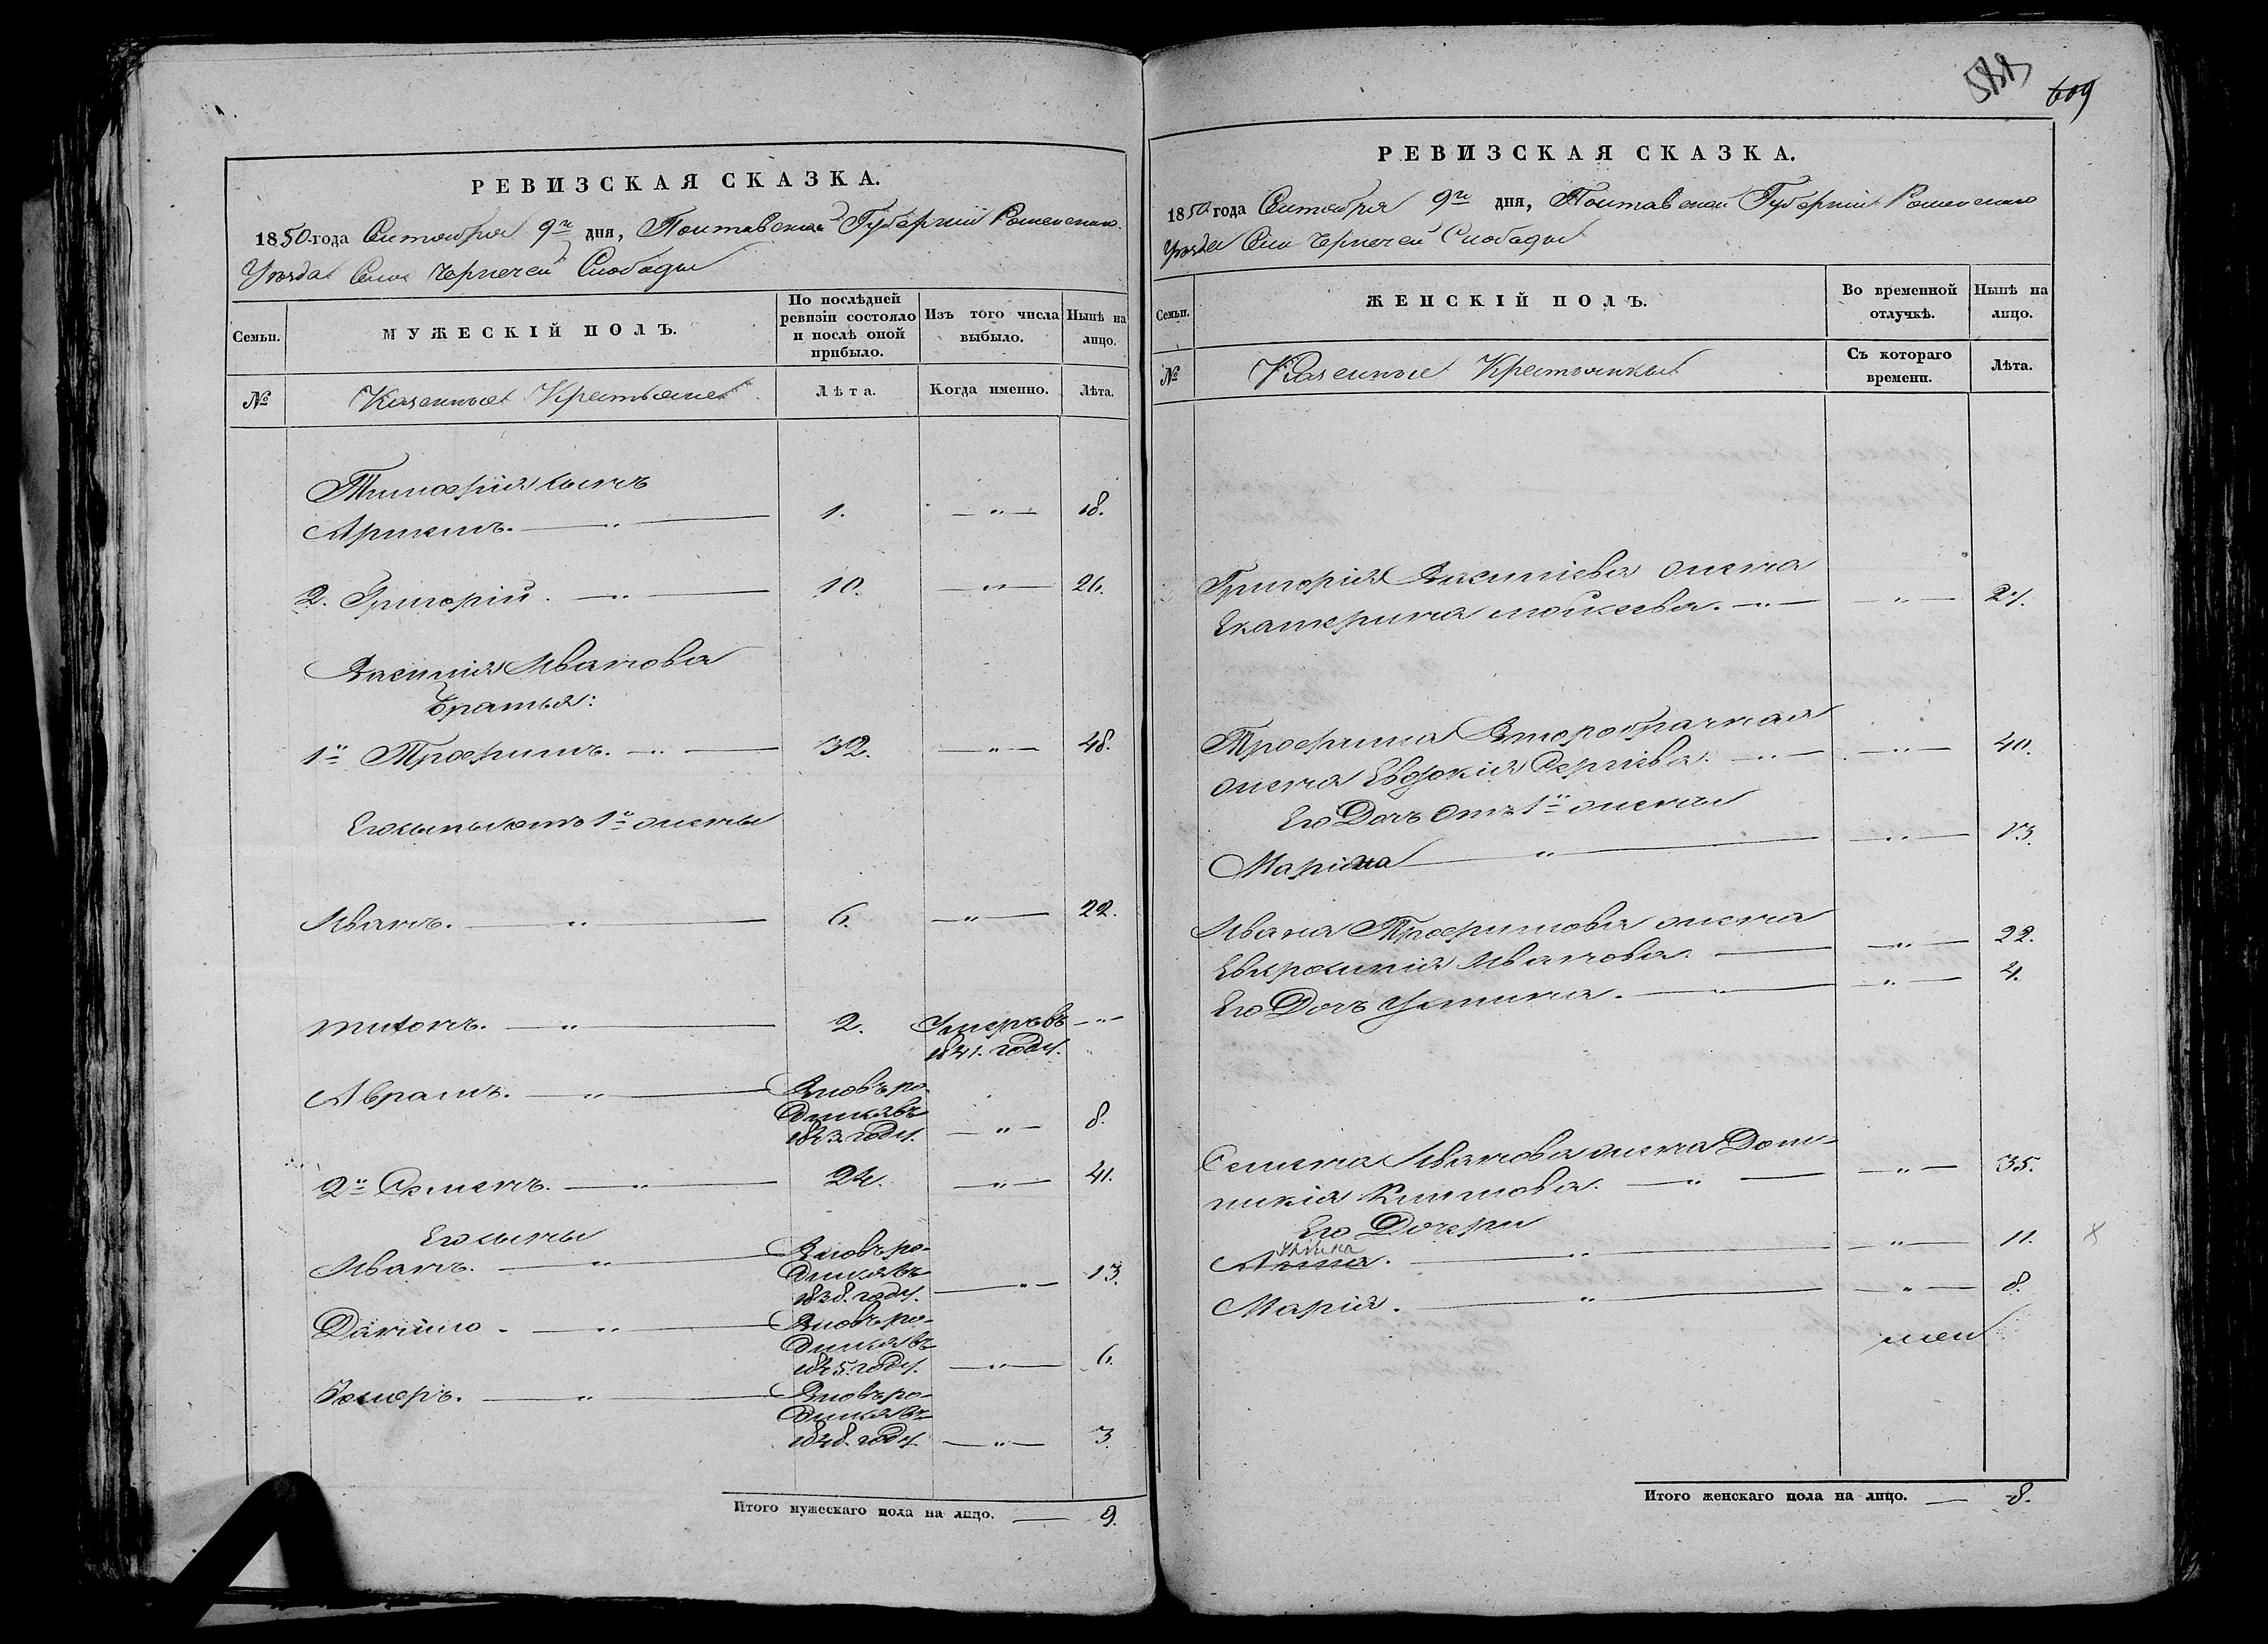 РЕВИЗСКАЯ СКАЗКА.
1850 года Октября 9го дня, Полтавской Губерніи Роменского
Уезда Села Чернечей Слободы
Семьи.
МУЖЕСКІЙ ПОЛЪ.
По послѣдней ревизіи состояло и послѣ оной прибыло.
Изъ того числа выбыло.
Нынѣ на лицо.
№
Казенные Крестьяне
Лѣта.
Когда именно.
Лѣта.
сынъ
Артемъ. — „ — 1. — „ — 18.
2. Григорій. — „ — 10. — „ — 26.
Василія Иванова
братья:
1й Трофимъ. — „ — 32. — „ — 48.
Его сыны отъ 1й жены
Иванъ. — „ — 6. — „ — 22.
Титонъ. — „ — 2. Умеръ въ — „ —
1841. году.
Аврамъ. — „ — Вновь ро-
дился въ
1843. году. — „ — 8.
2й Семенъ. — „ — 24. — „ — 41.
Его сыны
Иванъ. — „ — Вновь ро-
дился въ
1838. году. — „ — 13.
Данило. — „ — Вновь ро-
дился въ
1845. году. — „ — 6.
— „ — Вновь ро-
дился въ
1848. году. — „ — 3.
Итого мужескаго пола на лицо. — 9.
609
РЕВИЗСКАЯ СКАЗКА.
1850 года Октября 9го дня, Полтавской Губерніи Роменского
Уезда Села Чернечей Слободы
Семьи.
ЖЕНСКІЙ ПОЛЪ.
Во временной отлучкѣ.
Нынѣ на лицо.
№
Казенные Крестьянки
Съ котораго времени.
Лѣта.
Григорія Василіева жена
Екатерина Мойсеева. — „ — — „ — 27.
Трофима Второбрачная
жена Евдокія Сергіева. — „ — — „ — 40.
Его Дочь отъ 1й жены
Марина — „ — — „ — 13.
Ивана Трофимова жена
Евфросинія Иванова. — — „ — 22.
Его Дочь Устина. — „ — — „ — 4.
Семена Иванова жена Дом-
никія Климова. — „ — — „ — 35.
Его Дочери
Анна. — „ — — „ — 11.
Марія. — „ — — „ — 8.
Итого женскаго пола на лицо. — 8.